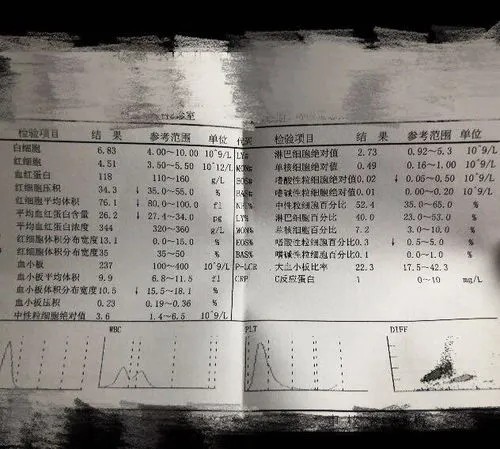 检验项目 结果 参考范围 单位
白细胞 6.83 4.00~10.00 10^9/L
红细胞 4.51 3.50~5.50 10^12/L
血红蛋白 118 110~160 g/L
红细胞压积 34.3 ↓ 35.0~55.0 %
红细胞平均体积 76.1 ↓ 80.0~100.0 fl
平均血红蛋白含量 26.2 ↓ 27.4~34.0 pg
平均血红蛋白浓度 344 320~360 g/L
红细胞体积分布宽度 13.1 0.0~15.0 %
红细胞体积分布宽 35 35~50 fL
血小板 237 100~400 10^9/L
血小板平均体积 9.9 6.8~11.5 fl
血小板体积分布宽度 10.5 ↓ 15.5~18.1 %
血小板压积 0.23 0.19~0.36 %
中性粒细胞绝对值 3.6 1.4~6.5 10^9/L
代码 检验项目 结果 参考范围 单位
LY# 淋巴细胞绝对值 2.73 0.92~5.3 10^9/L
MON# 单核细胞绝对值 0.49 0.16~1.00 10^9/L
EOS# 嗜酸性粒细胞绝对值 0.02 ↓ 0.05~0.50 10^9/L
BAS# 嗜碱性粒细胞绝对值 0.01 0.00~0.20 10^9/L
NE% 中性粒细胞百分比 52.4 35.0~65.0 %
LY% 淋巴细胞百分比 40.0 23.0~53.0 %
MON% 单核细胞百分比 7.2 3.0~10.0 %
EOS% 嗜酸性粒细胞百分比 0.3 ↓ 0.5~5.0 %
BAS% 嗜碱性粒细胞百分比 0.1 0.0~1.0 %
P-LCR 大血小板比率 22.3 17.5~42.3
CRP C反应蛋白 1 0~10 mg/L
WBC PLT DIFF